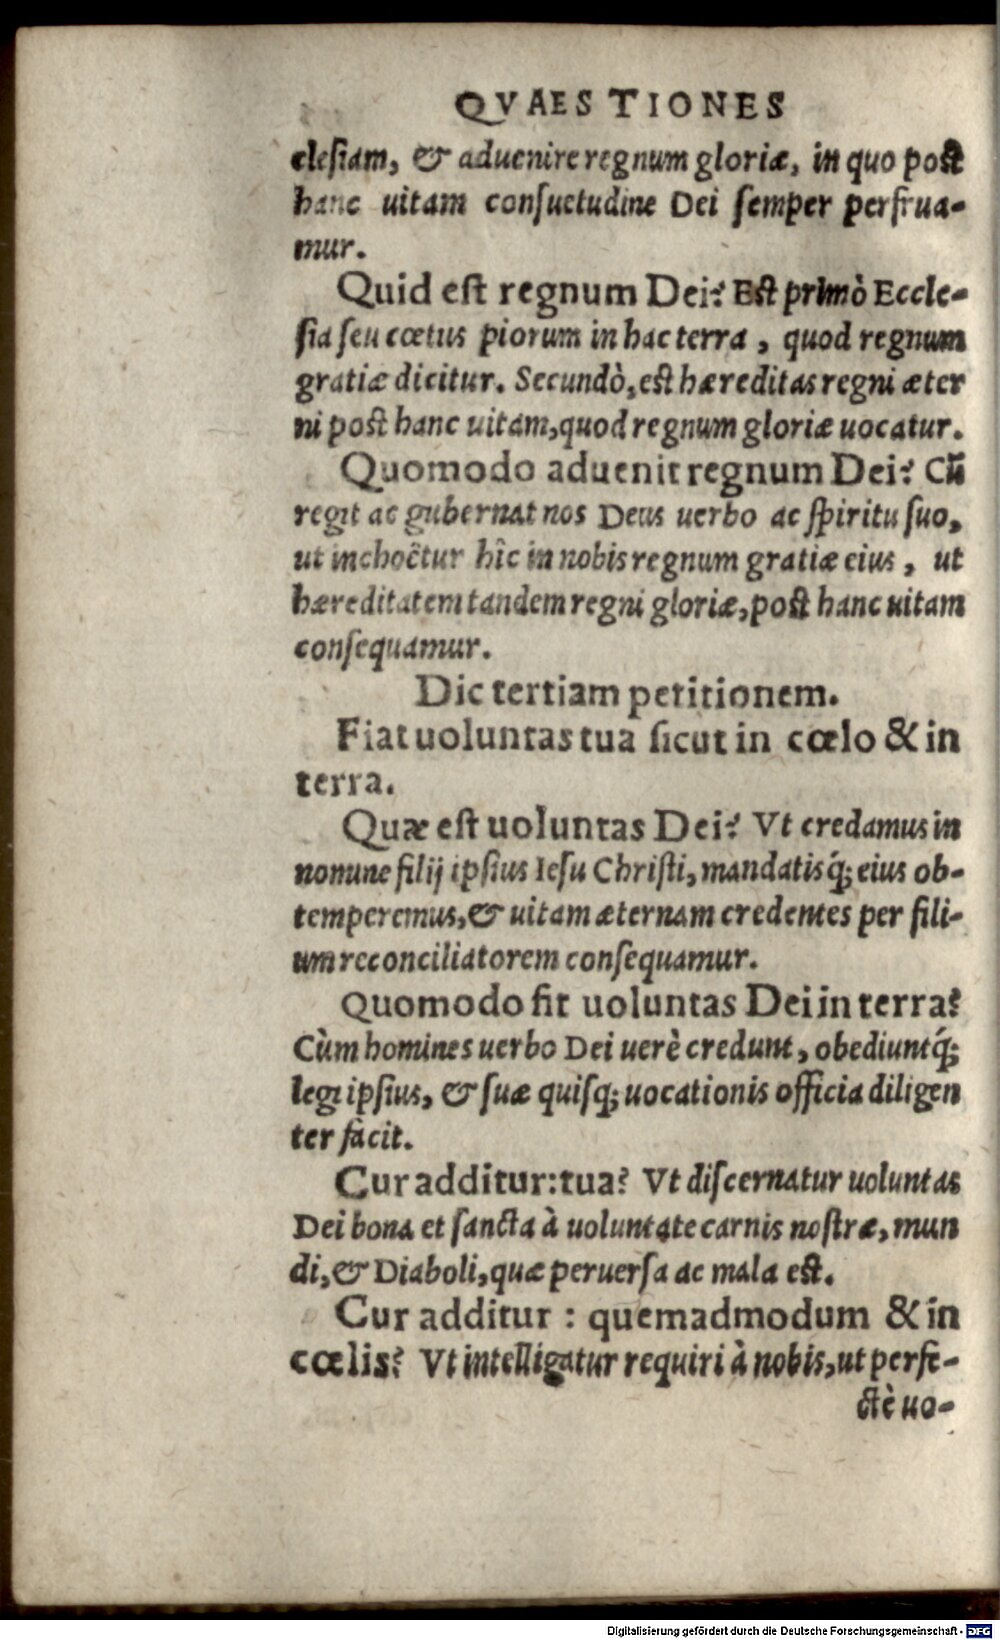 QVAESTIONES
clesiam, & aduenire regnum gloriæ, in quo post
hanc uitam consuetudine Dei semper perfrua-
mur.
Quid est regnum Dei? Est primò Eccle-
sia seu cœtus piorum in hac terra, quod regnum
gratiæ dicitur. Secundò, est hæreditas regni æter
ni post hanc uitam, quod regnum gloriæ uocatur.
Quomodo aduenit regnum Dei? Cũ
regit ac gubernat nos Deus uerbo ac spiritu suo,
ut inchoẽtur hîc in nobis regnum gratiæ eius, ut
hæreditatem tandem regni gloriæ, post hanc uitam
consequamur.
Dic tertiam petitionem.
Fiat uoluntas tua sicut in cœlo & in
terra.
Quæ est uoluntas Dei? Vt credamus in
nomine filij ipsius Iesu Christi, mandatisq́; eius ob-
temperemus, & uitam æternam credentes per fili-
um reconciliatorem consequamur.
Quomodo fit uoluntas Dei in terra?
Cùm homines uerbo Dei uerè credunt, obediuntq́;
legi ipsius, & suæ quisq; uocationis officia diligen
ter facit.
Cur additur: tua? Vt discernatur uoluntas
Dei bona et sancta à uoluntate carnis nostræ, mun
di, & Diaboli, quæ peruersa ac mala est.
Cur additur : quemadmodum & in
cœlis? Vt intelligatur requiri à nobis, ut perfe-
ctè uo-
Digitalisierung gefördert durch die Deutsche Forschungsgemeinschaft - DFG